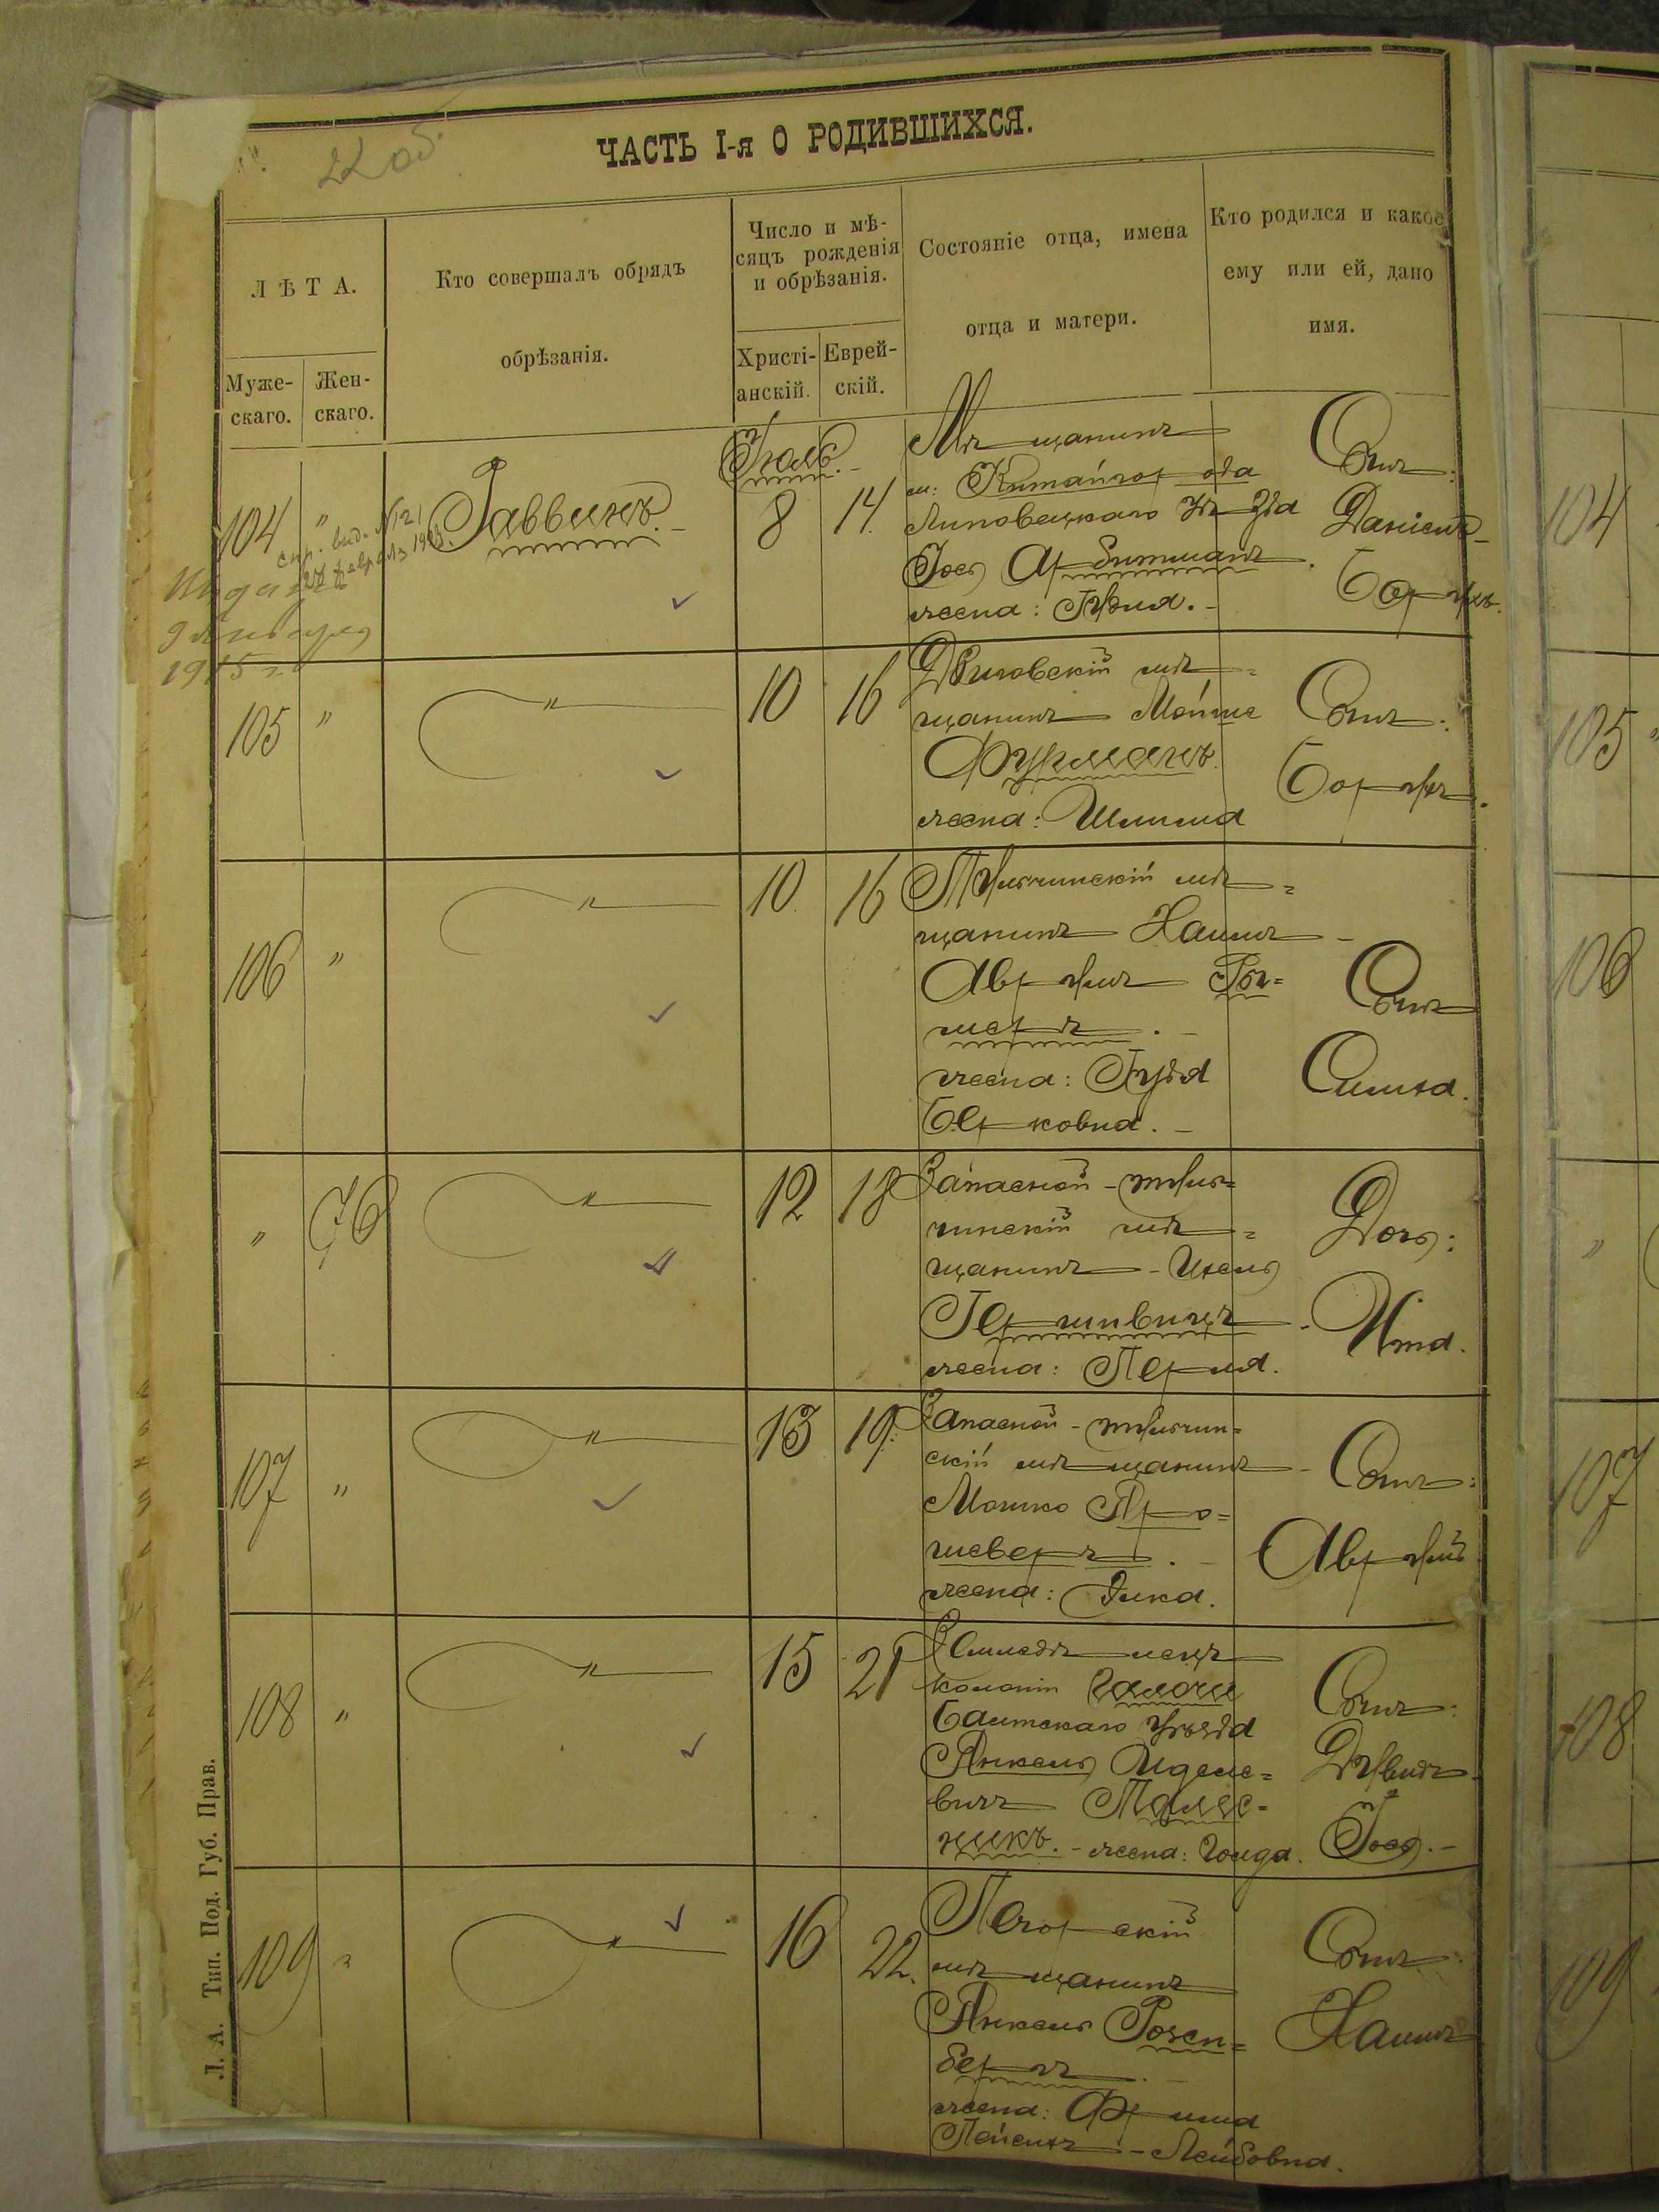 22 об.
ЧАСТЬ I-я О РОДИВШИХСЯ.
ЛѢТА.
Муже-
скаго.
Жен-
скаго.
Кто совершалъ обрядъ
обрѣзанія.
Число и мѣ-
сяцъ рожденія
и обрѣзанія.
Христі-
анскій.
Еврей-
скій.
Состояніе отца, имена
отца и матери.
Кто родился и какое
ему или ей, дано
имя.
Іюль.
104 "
Раввинъ.
8 14.
Мѣщанинъ
м: Китайгорода
Липовецкаго Уѣзда
Іось Арбитманъ.
жена: Гудля.
Сынъ:
Даніилъ-
Борухъ.
1915 г.
105 "
"
10 16
мѣ=
щанинъ Мойше
Фурманъ.
жена: Шлима
Сынъ:
Борухъ.
106 "
"
10 16
Тульчинскій мѣ=
щанинъ Хаимъ-
Аврумъ
жена:
Берковна.
Сынъ
Симха.
" 76
"
12 18
Запасной-тульчинскій мѣ=
щанинъ-Ихель
Гершвицъ.
жена: Перля.
Дочь:
Ита.
107 "
"
13 19.
Запасной-тульчин=
скій мѣщанинъ-
Мошко Яро=
шеверъ.
жена: Элка.
Сынъ:
Аврумъ
108 "
"
15 21
Земледѣлецъ
колоніи
Балтскаго Уѣзда
Янкель Иделе=
вичъ Палес=
никъ. - жена: Голда.
Сынъ:
Дувидъ-
Іось.
109 "
"
16 22.
Печорскій
мѣщанинъ
Янкель Розен=
бергъ.
жена: Фрима
-Лейбовна.
Сынъ:
Хаимъ
Л. А. Тип. Под. Губ. Прав.
104
105 "
106
"
107
108
109